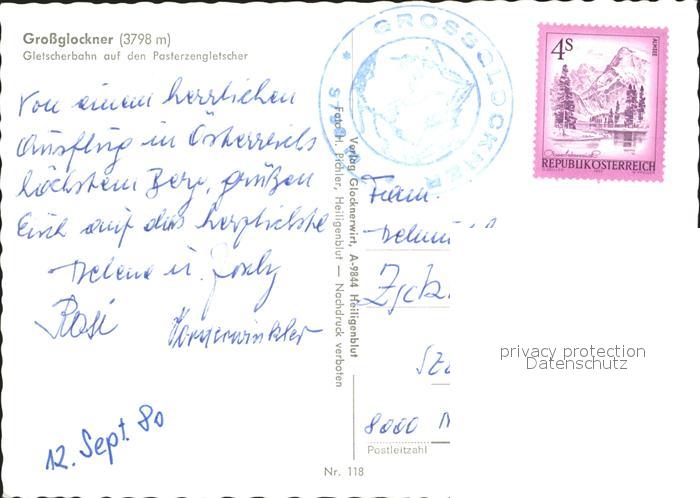 Großglockner (3798 m)
Gletscherbahn auf den Pasterzengletscher
Von einem herrlichen
Ausflug in Österreichs
höchstem Berg, grüßen
Euch auf das herzlichste
Helene u.
Rosi
12. Sept. 80
GROSSGLOCKNER
Verlag Glocknerwirt, A-9844 Heiligenblut
Foto H. Pichler, Heiligenblut — Nachdruck verboten
4S
ALMSEE
REPUBLIK ÖSTERREICH
Fam.
8000 M
Postleitzahl
Nr. 118
privacy protection
Datenschutz